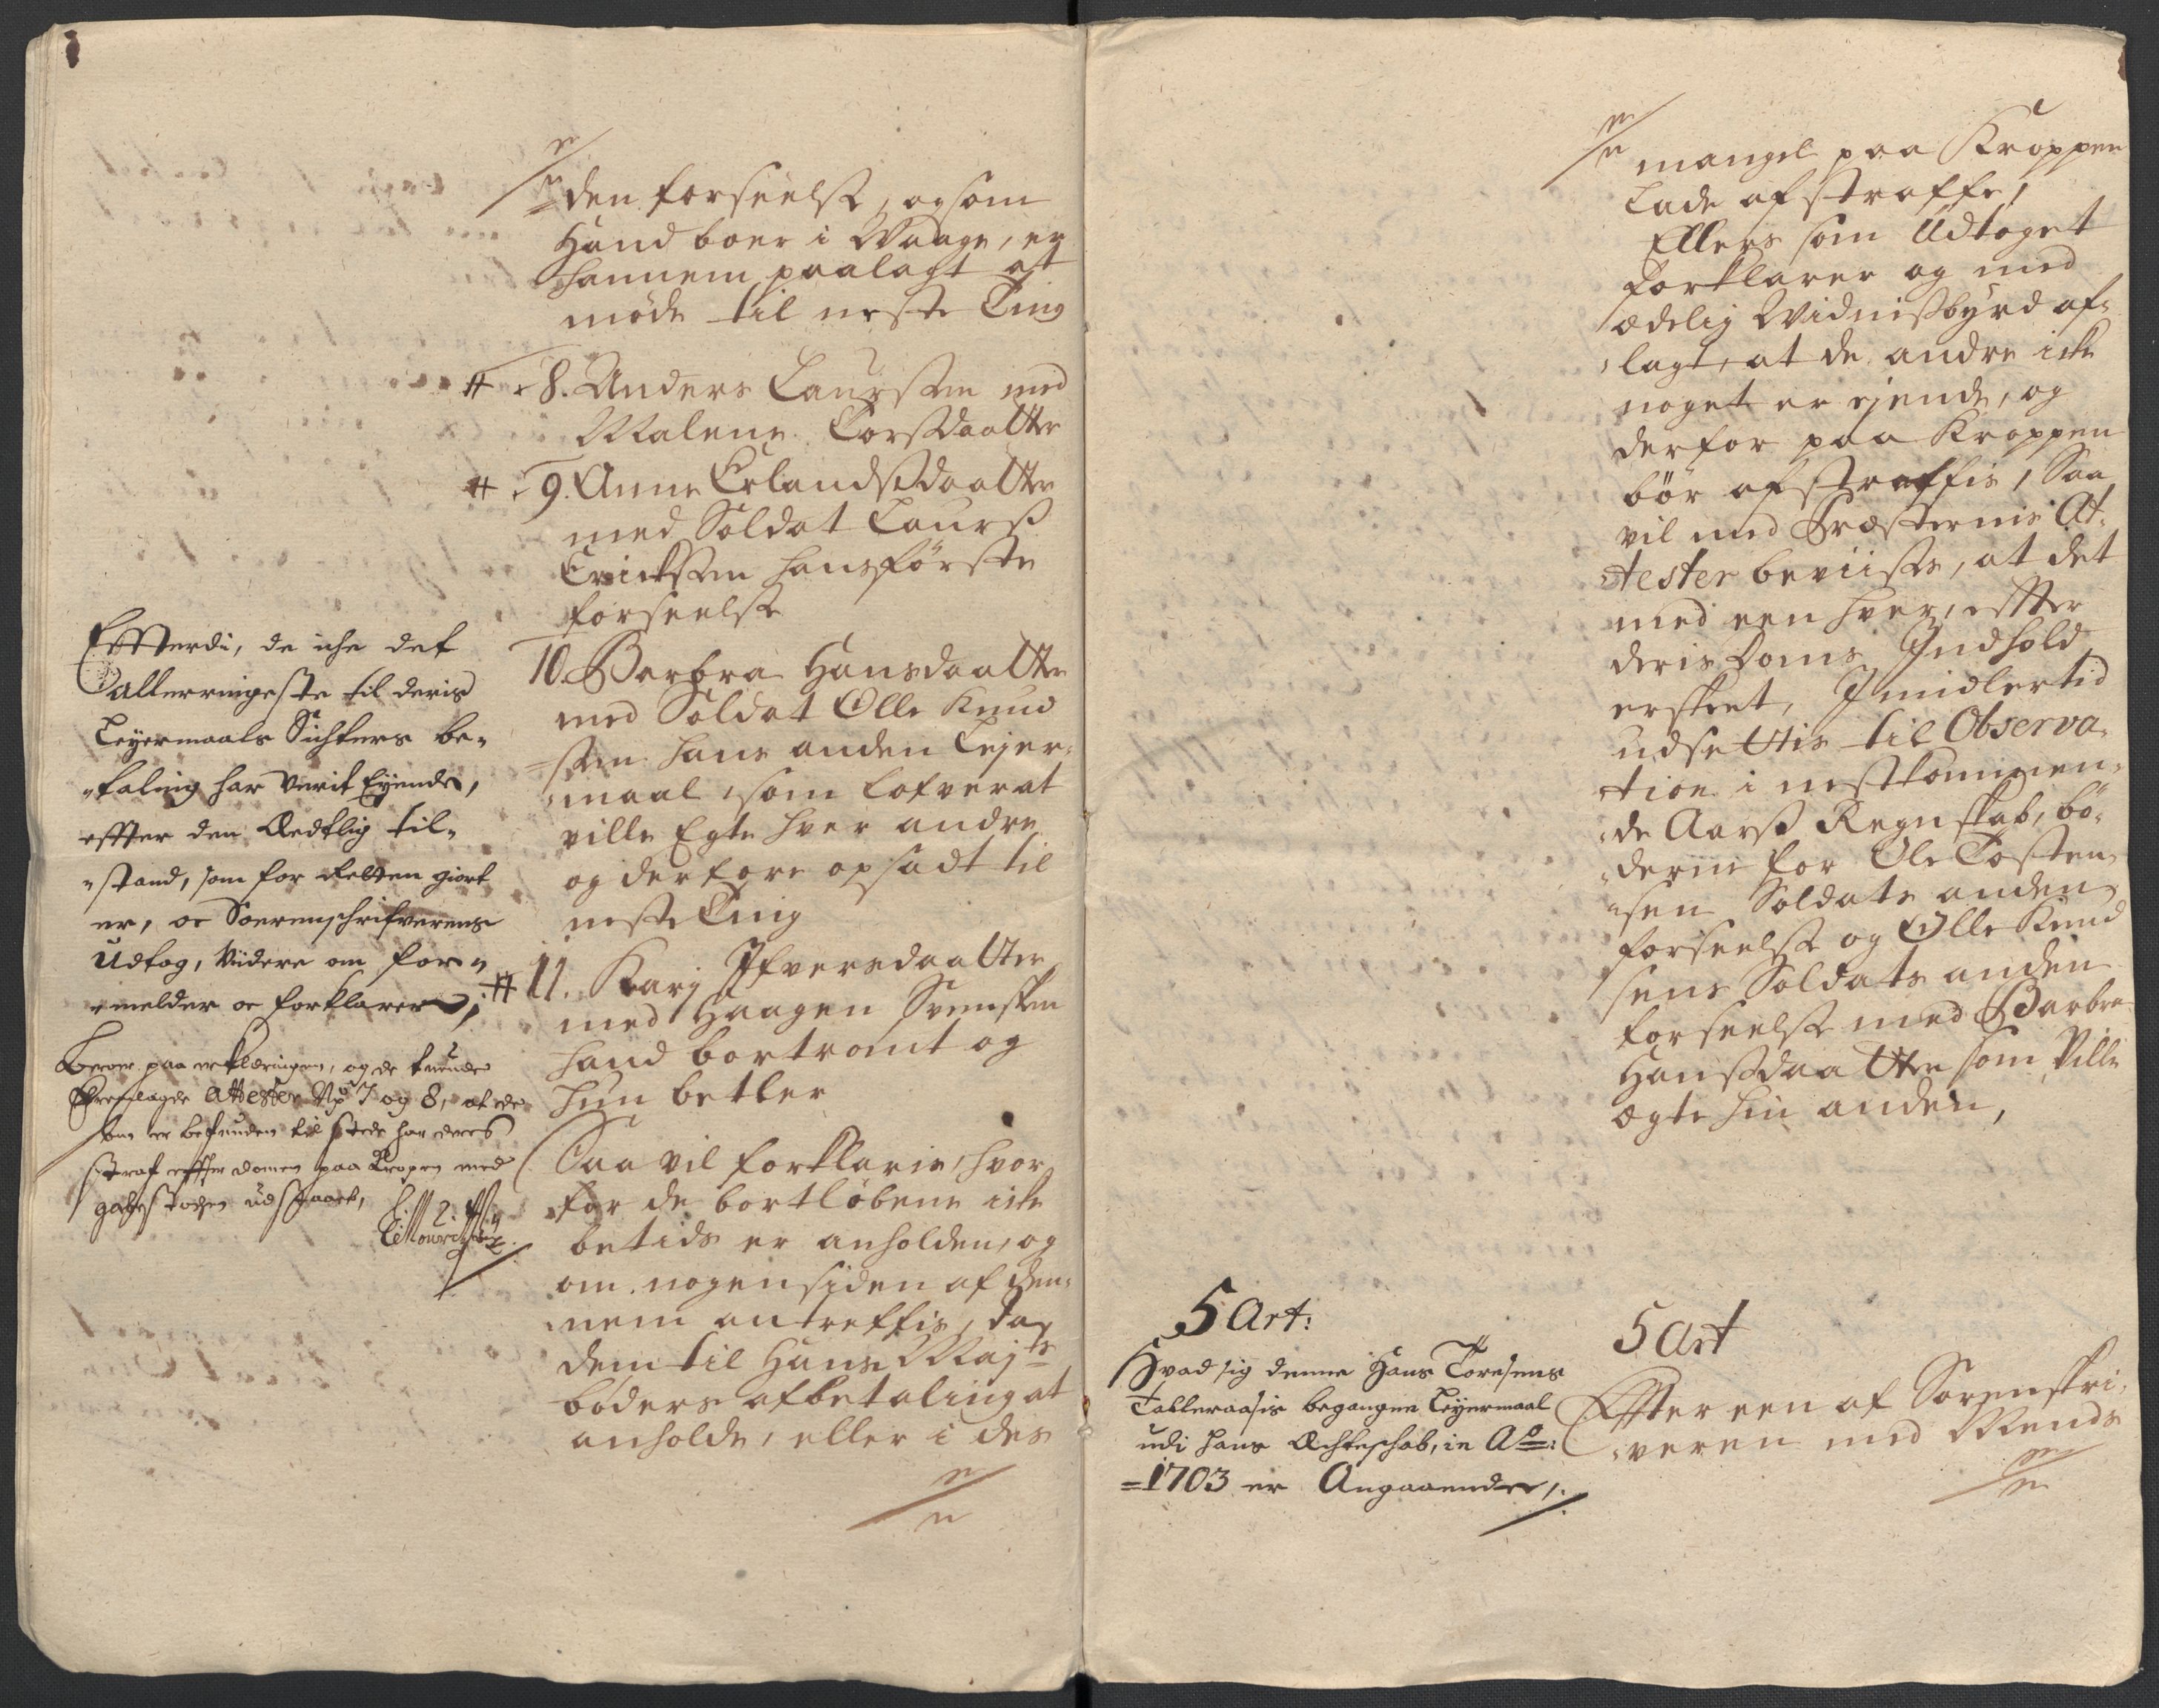 den forseelse, og som
Hand boer i Waage, er
hannem paalagt at
møde til neste Ting
# 8. Anders Laursen med
Malene Torsdaatter
# 9. Anne Erlandsdaatter
med Soldat Laurs
Ericksen hans første
forseelse
10. Barbra Hansdaatter
med Soldat Olle Knud
sen hans anden Lejer-
maal, som lofver at
ville Egte hver andre
og derfore opsadt til
neste Ting
# 11. Karj Ifversdaatter
med Haagen Svensken
hand bortrømt og
hun betler
Saa vil forklaris, hvor
for de bortløbene icke
betids er anholden, og
om nogen siden af den-
nem antreffis, da
dem til Hans Maj:ts
bøders afbetaling at
anholde, eller i des
Effterdi, de iche det
allerringeste til deris
Leyermaals Sichters be-
taling har verit Eyende,
effter den Ædtlig til-
stand, som for Retten giort
er, oc Soerenschrifverens
Udtog, Viidere om for-
melder oc forklarer;
Beroer paa erklæringen, og de tvende
Fremlagde Attester No 7 og 8, at de
som er befunden til stede har deres
straf effter domen paa Kropen med
gabestochen udstaaet,
mangel paa Kroppen
Lade afstraffe,
Ellers som Udtoget
forklarer og med
ædelig Widnisbyrd af-
lagt, at de andre icke
noget er ejende, og
derfor paa Kroppen
bør afstraffis, Saa
vil med Præsternis At-
tester beviises, at det
med een hver, effter
deris Doms Indhold
er skeet, Imidlertid
udsettis til Observa-
tion i nestkommen-
de Aars Regnskab, bø-
derne for Ole Tosten-
sen Soldats anden
forseelse og Olle Knud
sens Soldats anden
forseelse med Barbra
Hansdaatter som Ville
ægte hin anden,
5 Art:
Hvad sig denne Hans Toresens
Talleraasis begangne Leyermaal
udi hans Ächteschab, in Ao:
1703 er Angaaende,
5 Art
Effter een af Sorenskri-
veren med Mends